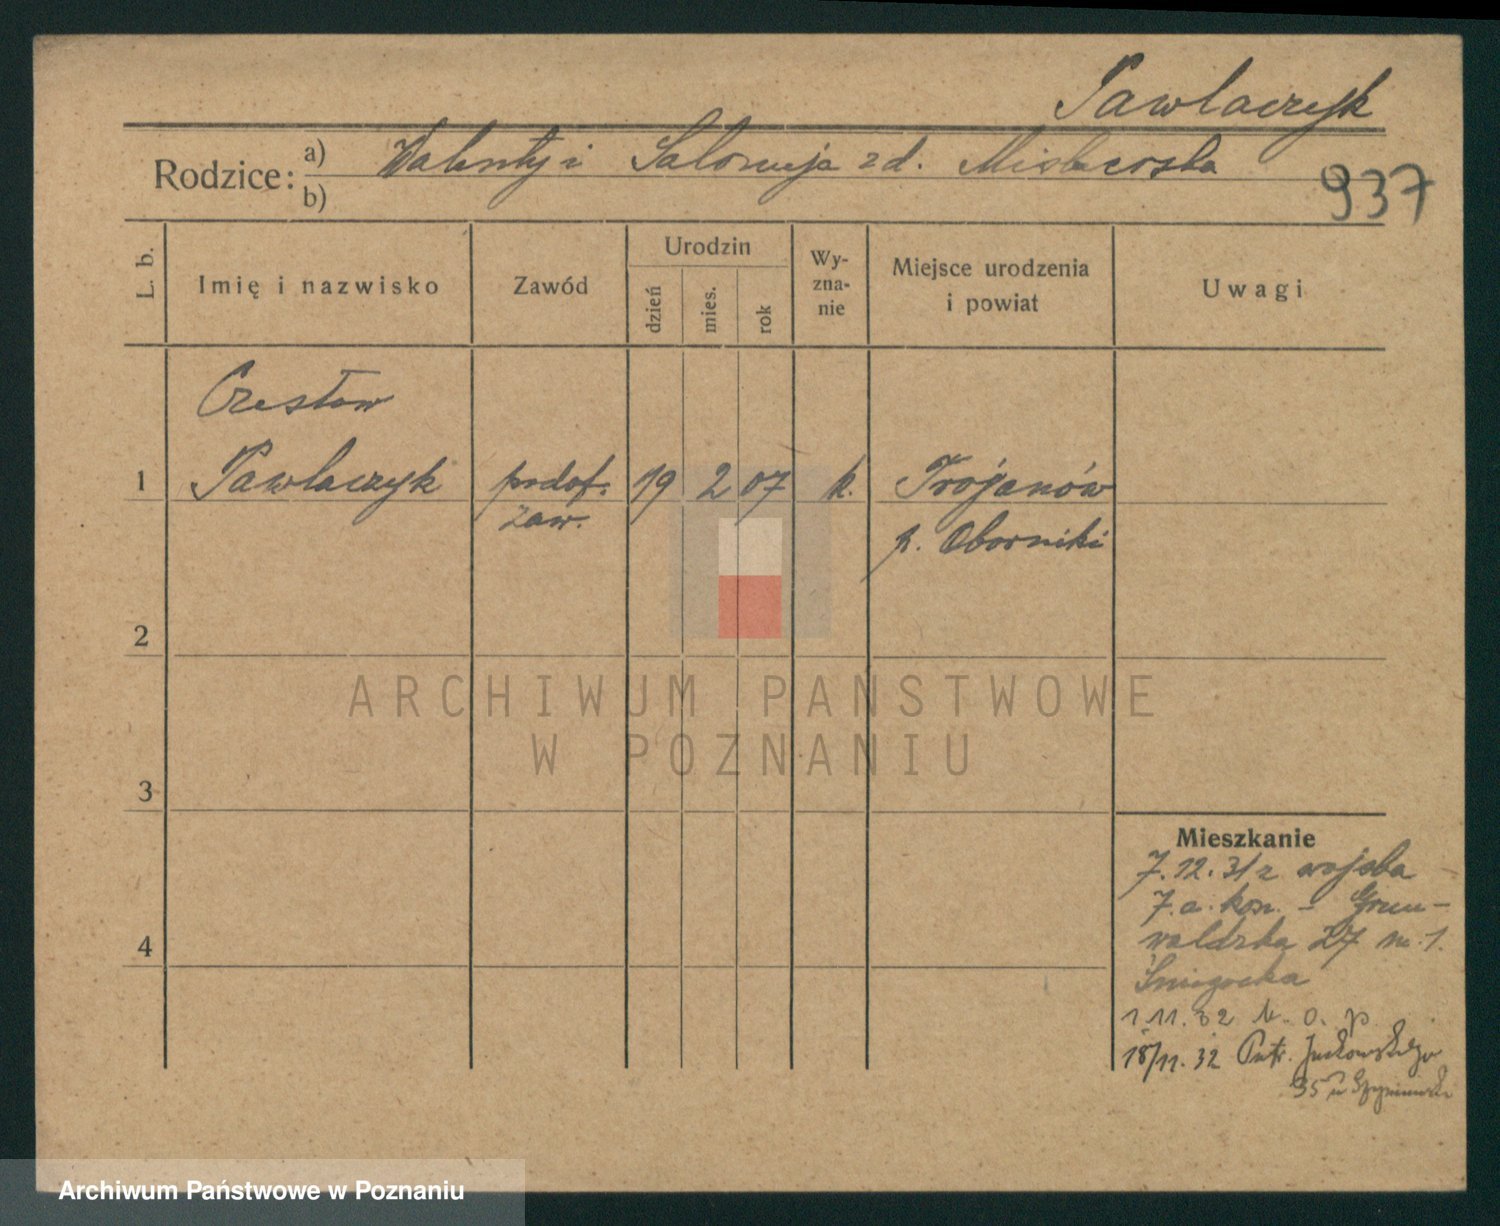 Pawlaczyk
Rodzice: a) Walenty i Salomeja zd.
b)
937
L. b.
Imię i nazwisko
Zawód
Urodzin
dzień
mies.
rok
Wy-
zna-
nie
Miejsce urodzenia
i powiat
Uwagi
Czesław
1 Pawlaczyk podof. 19 2 07 k. Trojanów
zaw. p. Oborniki
2
ARCHIWUM PAŃSTWOWE
W POZNANIU
3
Mieszkanie
7.12.31 z wojska
7.a. kon. - Grun-
4
waldzka 27 m. 1.
1.11.32 N. o. p
18/11.32 Patr. Jackowskiego
35 u
Archiwum Państwowe w Poznaniu